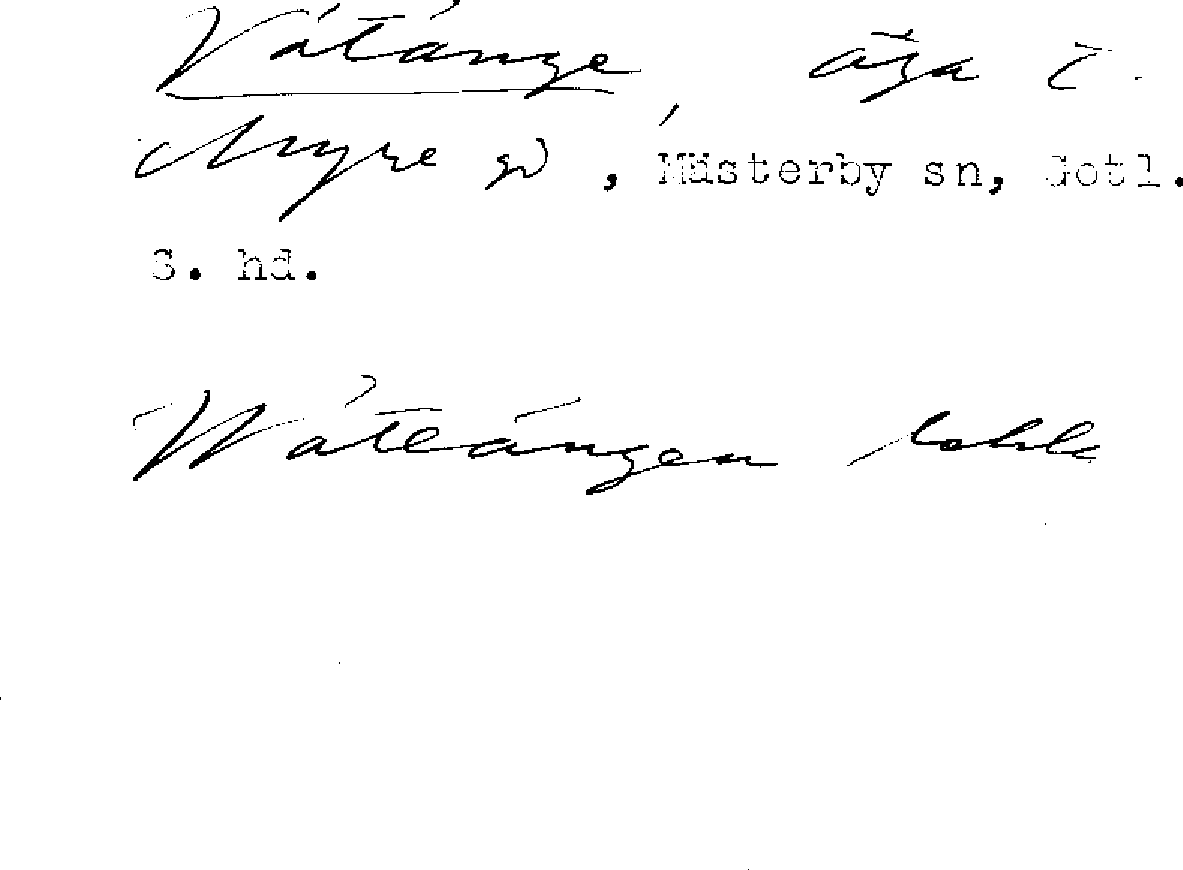 Vätänge, äga i
Myre gd, Mästerby sn, Gotl.
S. hd.
Wäteängen